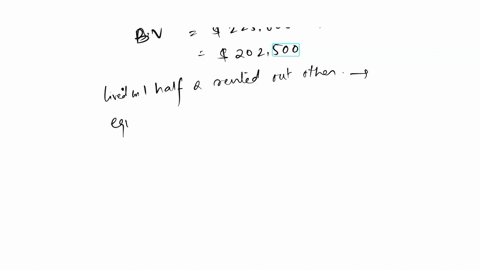 BV = $ 225,000
= $ 202,500
lived in 1 half & rented out other. →
eq